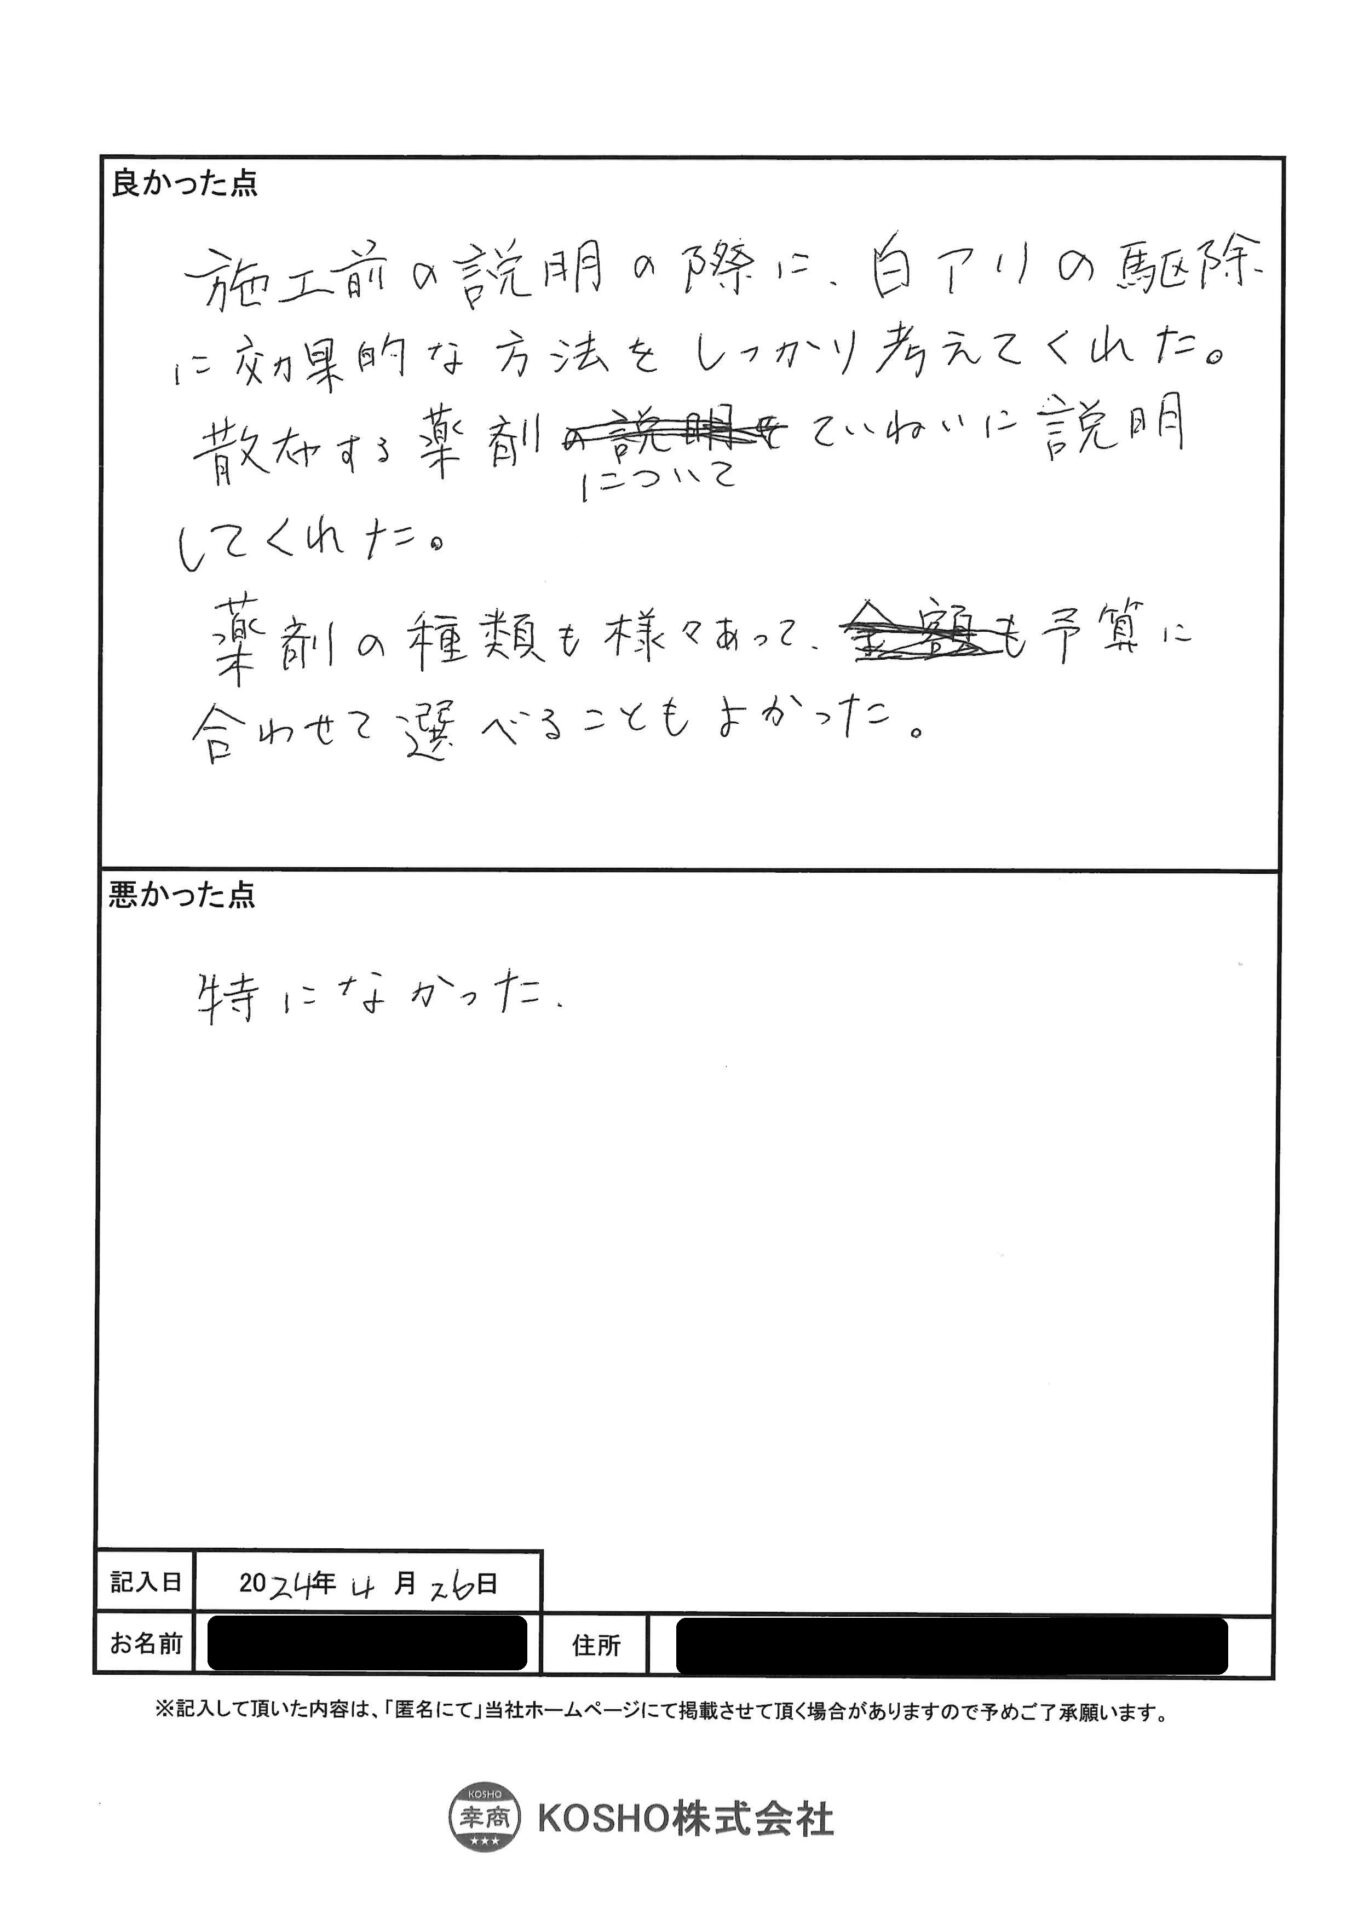 良かった点
施工前の説明の際に、白アリの駆除
に効果的な方法をしっかり考えてくれた。
散布する薬剤の説明をていねいに説明
について
してくれた。
薬剤の種類も様々あって、金額も予算に
合わせて選べることもよかった。
悪かった点
特になかった.
記入日 2024年 4月 26日
お名前 住所
※記入して頂いた内容は、「匿名にて」当社ホームページにて掲載させて頂く場合がありますので予めご了承願います。
KOSHO
幸商
★★★
KOSHO株式会社